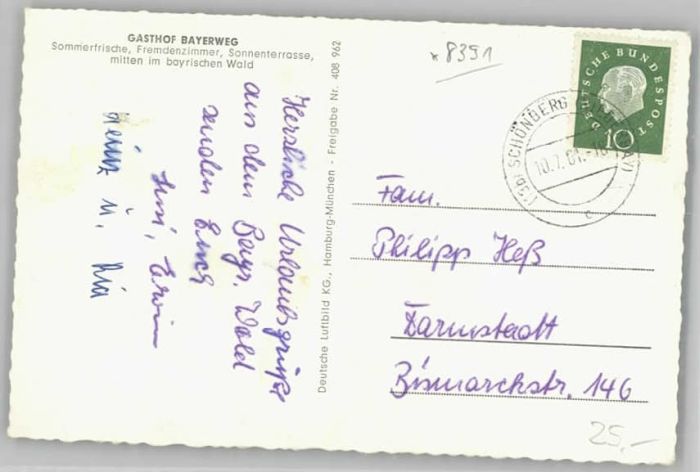 GASTHOF BAYERWEG
Sommerfrische, Fremdenzimmer, Sonnenterrasse,
mitten im bayrischen Wald
Herzliche Urlaubsgrüße
aus dem Bayr. Wald
senden Euch
Erwin
Heinz u. Ria
Deutsche Luftbild KG., Hamburg-München - Freigabe Nr. 408 962
8391
DEUTSCHE BUNDESPOST
10
(13b) SCHÖNBERG
10.7.61.-18
c
Fam.
Philipp Heß
Darmstadt
Bismarckstr. 146
25,-